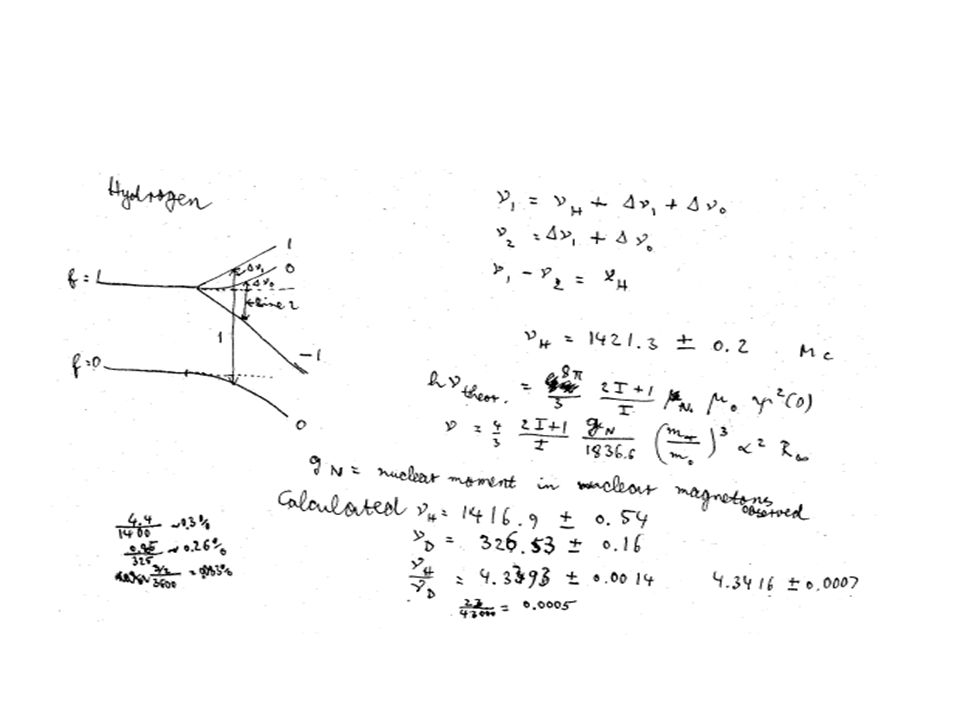 Hydrogen
f = 1
1
0
Δν₁
Δν₀
line 2
1
-1
f=0
0
ν₁ = ν_H + Δν₁ + Δν₀
ν₂ = Δν₁ + Δν₀
ν₁ - ν₂ = ν_H
ν_H = 1421.3 ± 0.2 Mc
hν_theor. = 8π/3 (2I+1)/I μ_N μ₀ ψ²(0)
ν = 4/3 (2I+1)/I g_N/1836.6 (m_r/m₀)³ α² R∞
g_N = nuclear moment in nuclear magnetons
observed
Calculated ν_H = 1416.9 ± 0.54
ν_D = 326.53 ± 0.16
ν_H/ν_D = 4.3393 ± 0.0014 4.3416 ± 0.0007
23/43000 = 0.0005
4.4/1400 ~0.3%
0.85/325 ~0.26%